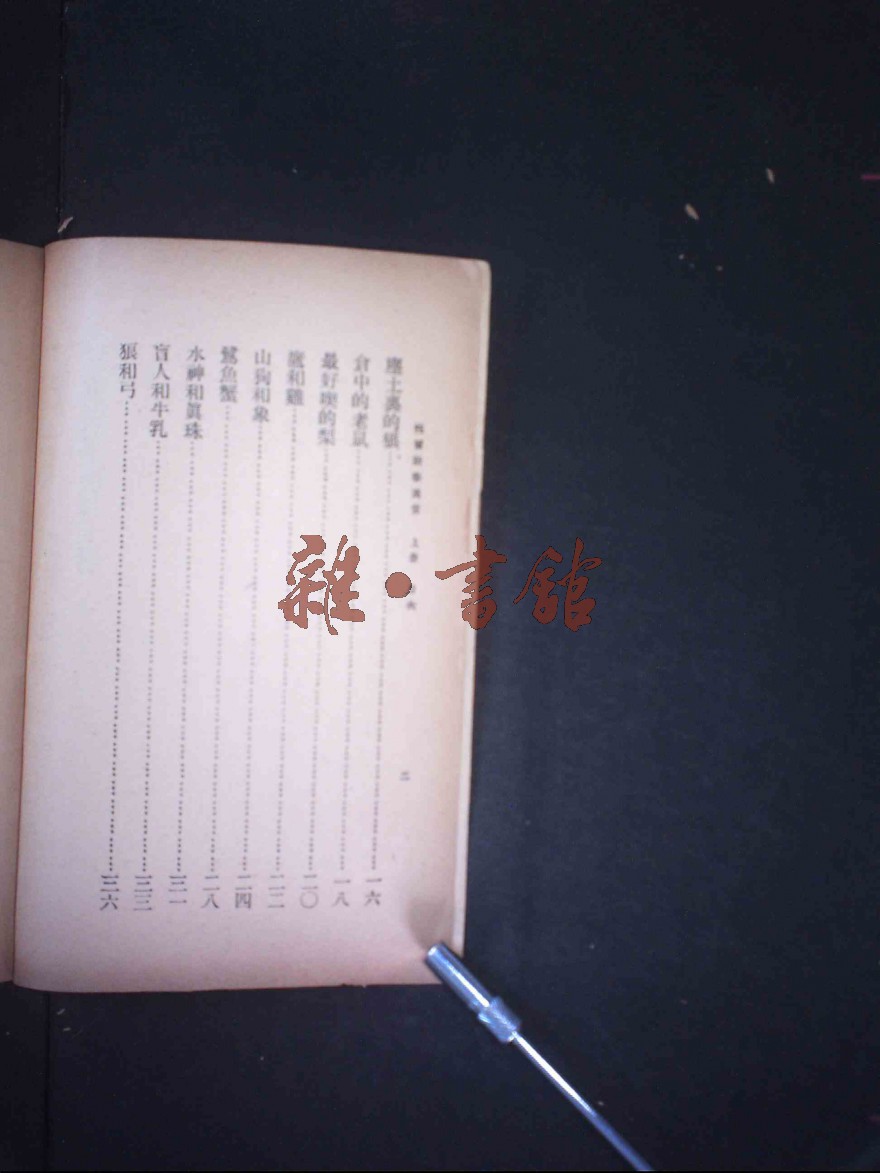 上册 目次
二
塵土裏的狼……一六
倉中的老鼠……一八
最好喫的梨……二〇
鷹和雞……二二
山狗和象……二四
鷺魚蟹……二八
水神和眞珠……三一
盲人和牛乳……三三
狼和弓……三六
雜·書館